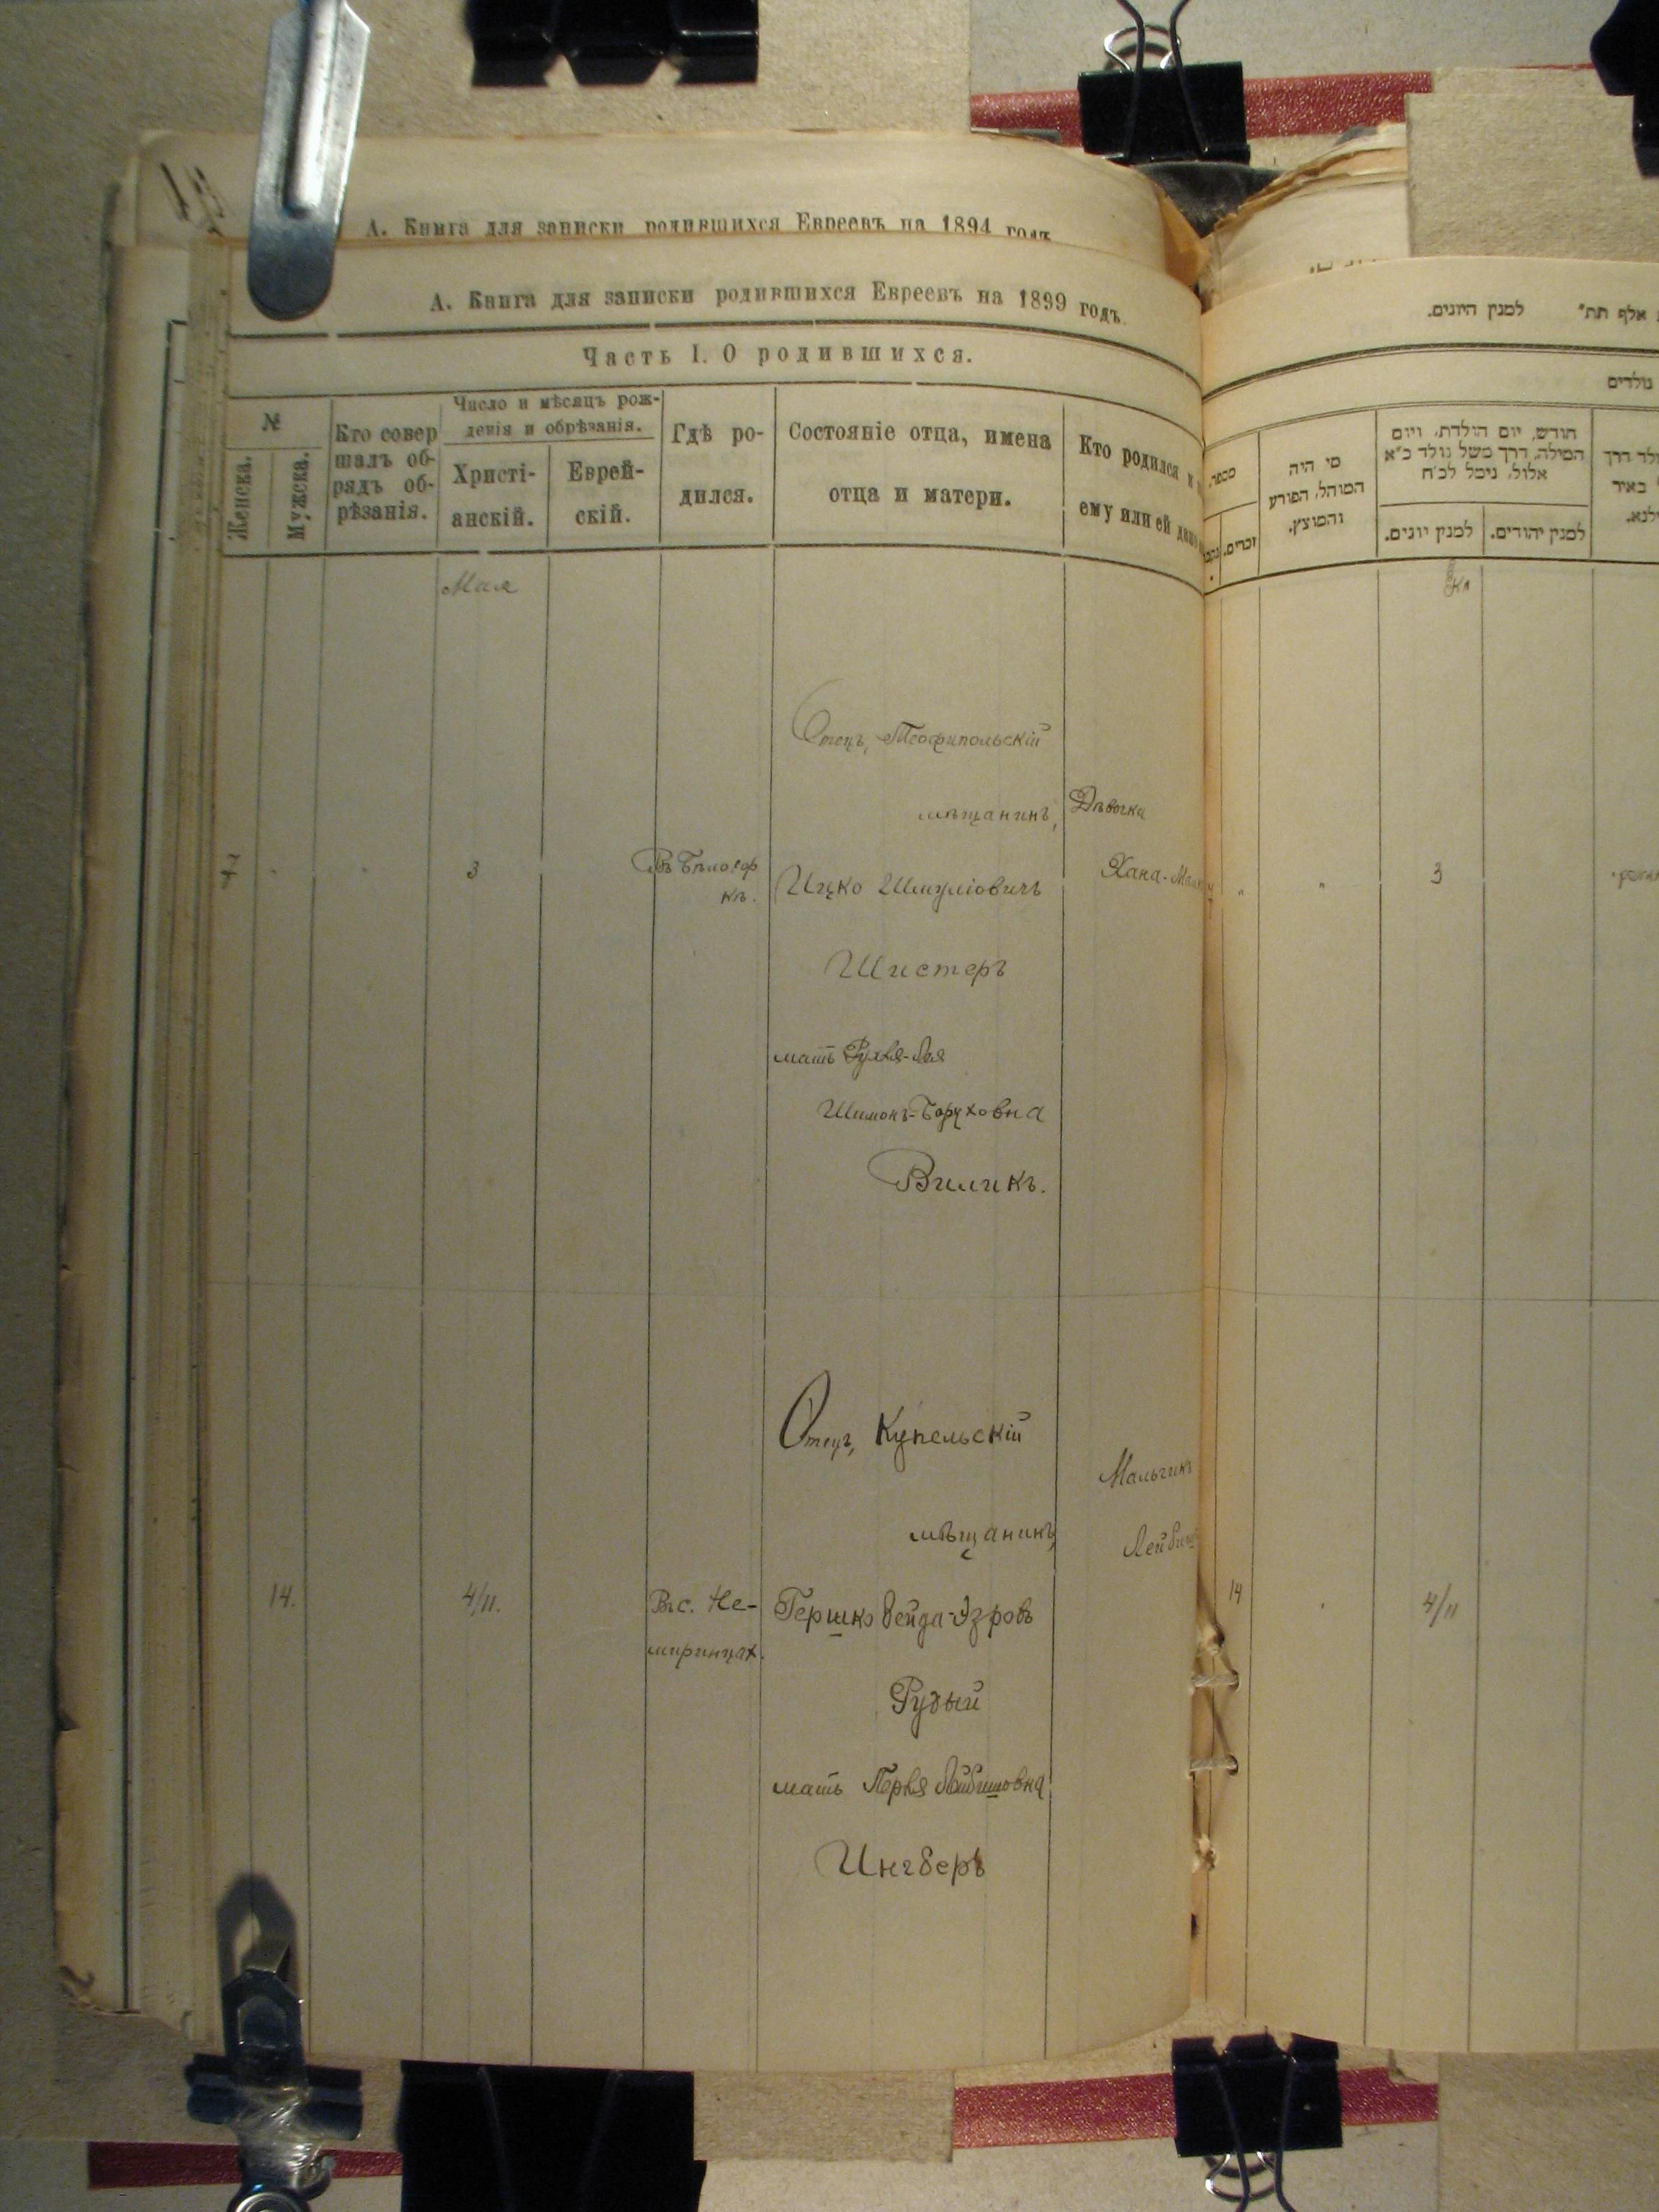 А. Книга для записки родившихся Евреевъ на 1894 годъ
А. Книга для записки родившихся Евреевъ на 1899 годъ.
Часть I. О родившихся.
№
Женска.
Мужска.
Кто совер
шалъ об-
рядъ об-
рѣзанія.
Число и мѣсяцъ рож-
денія и обрѣзанія.
Христі-
анскій.
Еврей-
скій.
Гдѣ ро-
дился.
Состояніе отца, имена
отца и матери.
Кто родился и
ему или ей дано
Мая
3
Въ Бѣлогор
кѣ.
Отецъ, Теофипольскій
мѣщанинъ,
Ицко Шмуліовичъ
Шистеръ
мать Рухля-Лея
Шимонъ-Боруховна
Виликъ.
Дѣвочка
Хана-
14.
4/11.
Въ с. Не-
миринцах.
Отецъ, Купельскій
мѣщанинъ,
Гершко
Рудый
мать Перля Лейбишовна
Ингберъ
Мальчикъ
Лейбишъ
אלף תת״
למנין היונים.
נולדים
מספר.
זכרים.
מי היה
המוהל, הפורע
והמוצץ.
חודש, יום הולדת, ויום
המילה, דרך משל נולד כ״א
אלול, נימל לכ״ח
למנין יונים.
למנין יהודים.
3
14
4/11